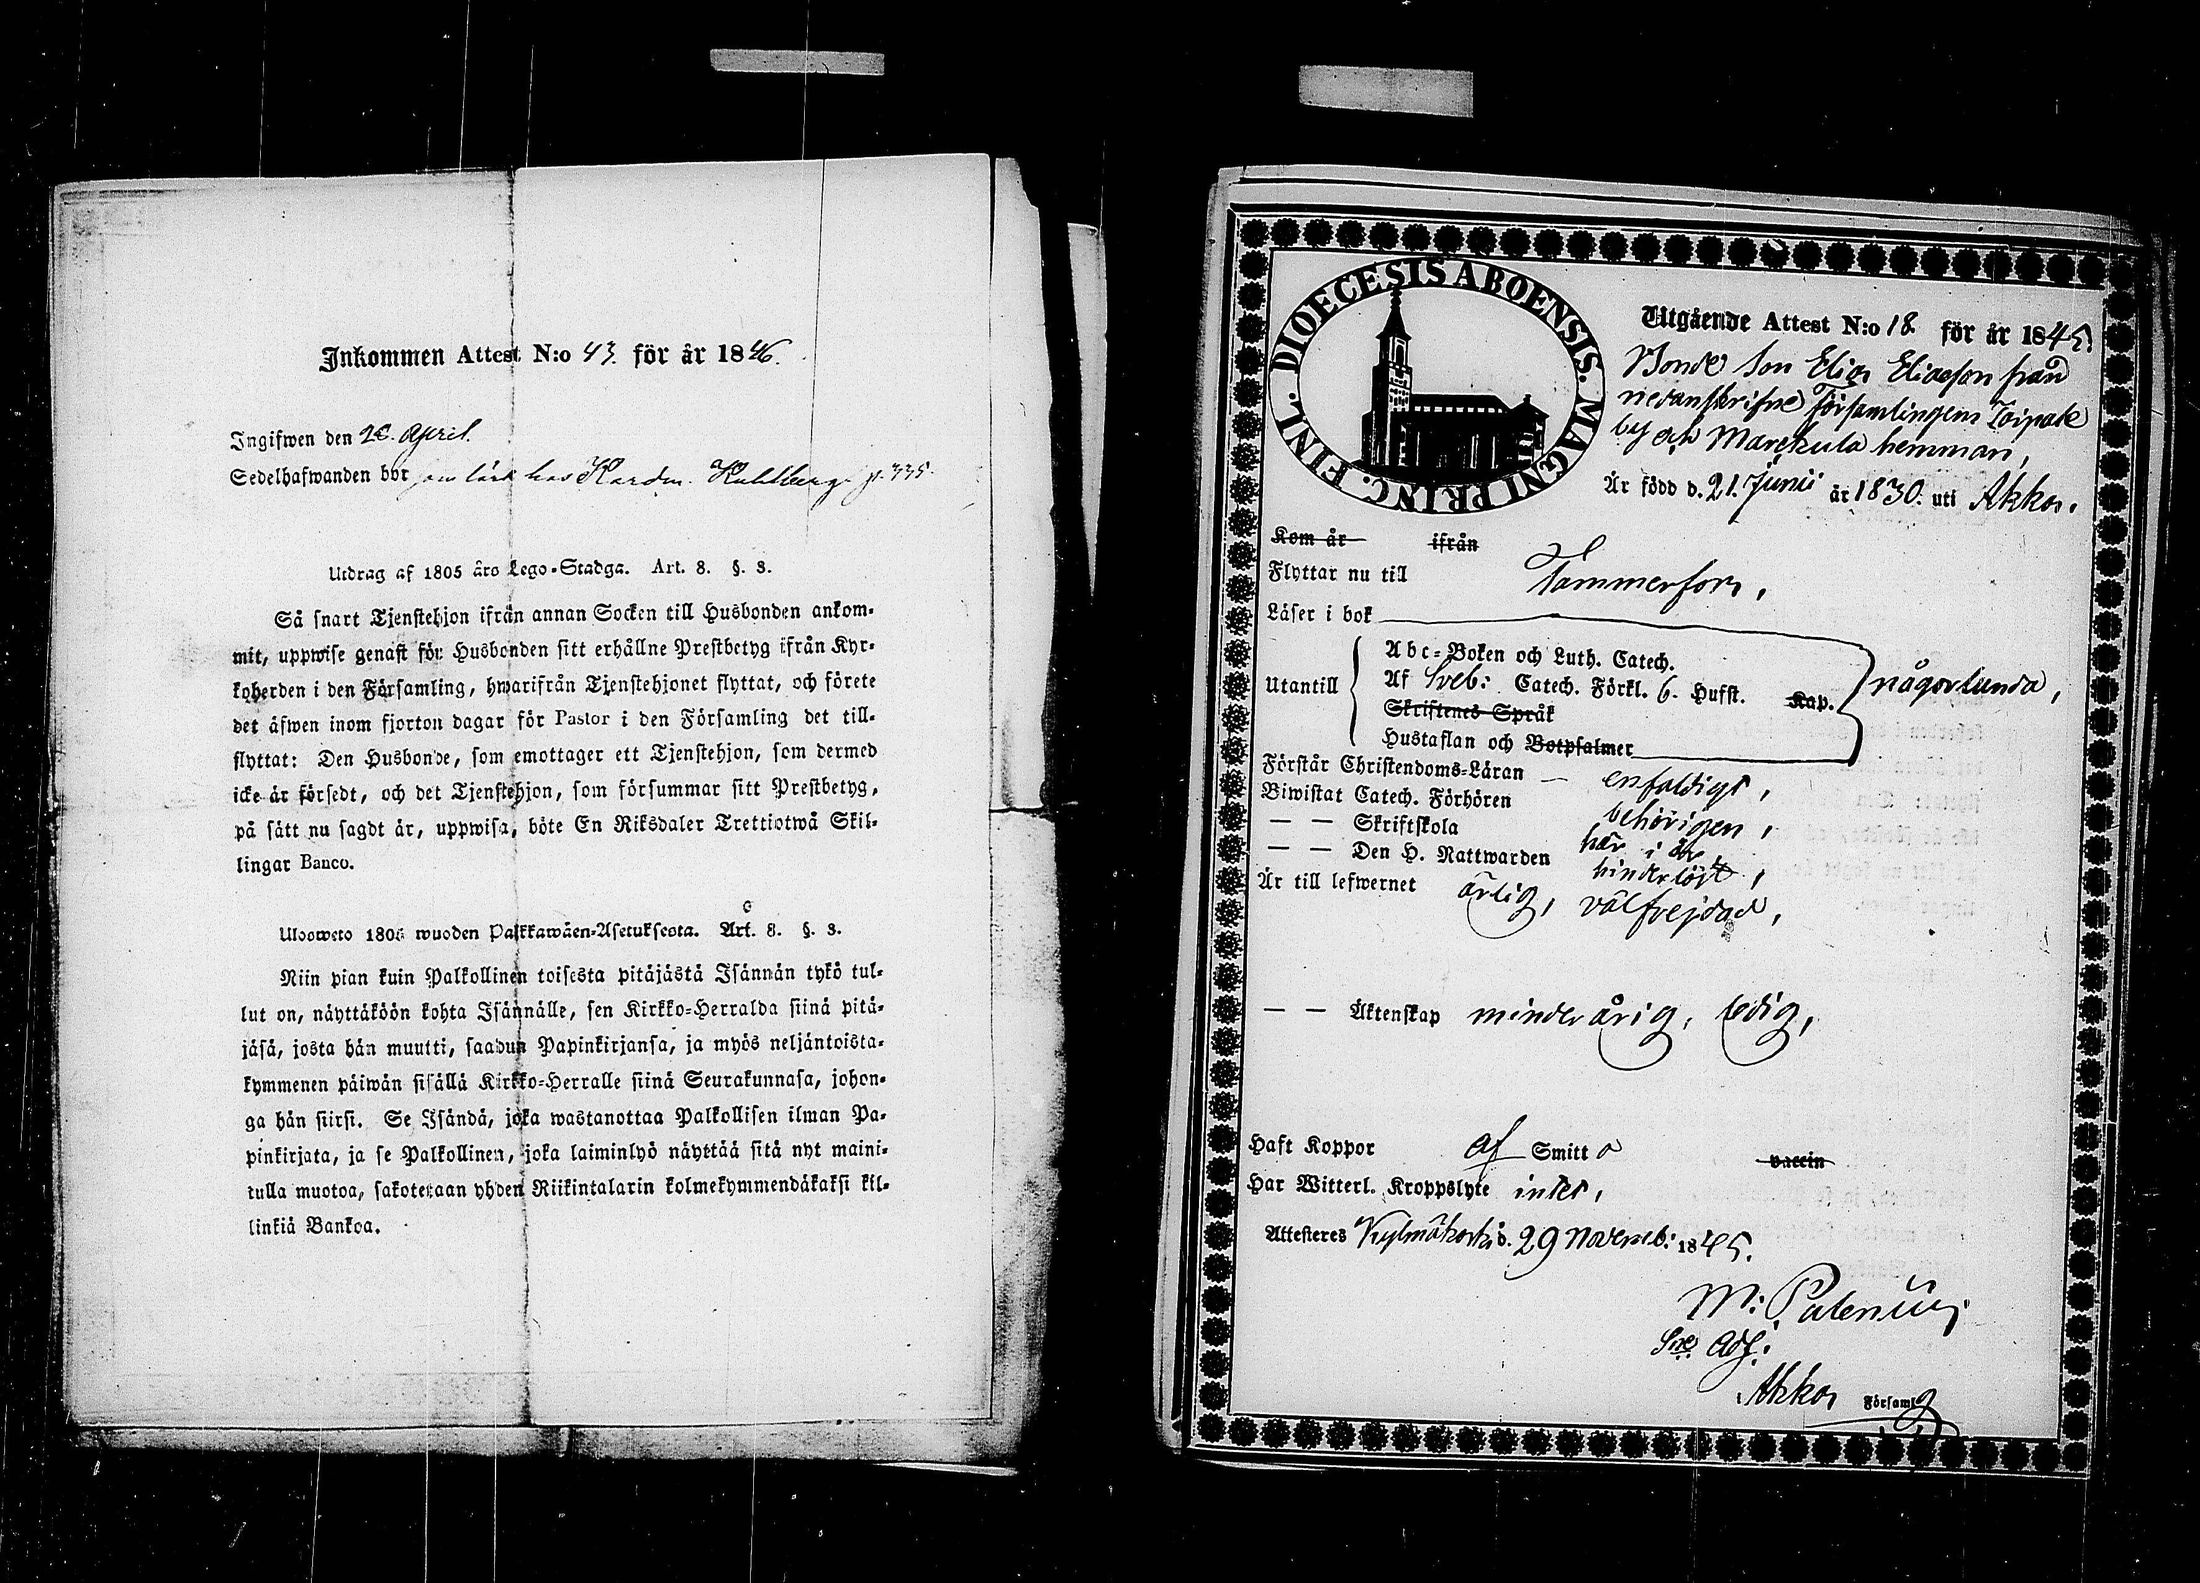 Inkommen Attest N:o 43. för år 1846.
Ingifwen den 26. April.
Sedelhafwanden bor som lärl. hos Kardm. Kuhlberg. p. 335.
Utdrag af 1805 års Lego-Stadga. Art. 8. §. 3.
Så snart Tjenstehjon ifrån annan Socken till Husbonden ankom-
mit, uppwise genast för Husbonden sitt erhållne Prestbetyg ifrån Kyr-
koherden i den Församling, hwarifrån Tjenstehjonet flyttat, och förete
det äfwen inom fjorton dagar för Pastor i den Församling det till-
flyttat: Den Husbonde, som emottager ett Tjenstehjon, som dermed
icke är försedt, och det Tjenstehjon, som försummar sitt Prestbetyg,
på sätt nu sagdt är, uppwisa, böte En Riksdaler Trettiotwå Skil-
lingar Banco.
Ulosweto 1805 wuoden Palkkawäen-Asetuksesta. Art. 8. §. 3.
Niin pian kuin Palkollinen toisesta pitäjästä Isännän tykö tul-
lut on, näyttäköön kohta Isännälle, sen Kirkko-Herralda siinä pitä-
jäsä, josta hän muutti, saadun Papinkirjansa, ja myös neljäntoista-
kymmenen päiwän sisällä Kirkko-Herralle siinä Seurakunnasa, johon-
ga hän siirsi. Se Isändä, joka wastanottaa Palkollisen ilman Pa-
pinkirjata, ja se Palkollinen, joka laiminlyö näyttää sitä nyt maini-
tulla muotoa, sakotetaan yhden Riikintalarin kolmekymmendäkaksi kil-
linkiä Bankoa.
DIOECESIS ABOENSIS. MAGNI PRINC. FINL.
Utgående Attest N:o 18. för år 1845.
Bonde Son Elias Eliasson från
nedanskrifne Församlingens Toipale
by och Marckula hemman,
Är född d. 21. Junii år 1830. uti Akkas.
Kom år ifrån
Flyttar nu till Tammerfors,
Läser i bok
Utantill
Abc-Boken och Luth. Catech.
Af Sveb: Catech. Förkl. 6. Hufst. Kap.
någorlunda,
Skriftenes Språk
Hustaflan och Botpsalmer
Förstår Christendoms-Läran — enfaldigt,
Biwistat Catech. Förhören behörigen,
— — Skriftskola här i år
— — Den H. Nattwarden hinderlöst,
Är till lefwernet ärlig, välfrejdad,
— — Äktenskap minderårig, ledig,
Haft Koppor af Smitta vaccin
Har Witterl. Kroppslyte intet,
Attesteres Kylmäkoski d. 29 Novemb: 1845.
M: Palenius
Sac. Adj:
Akkas Församlg